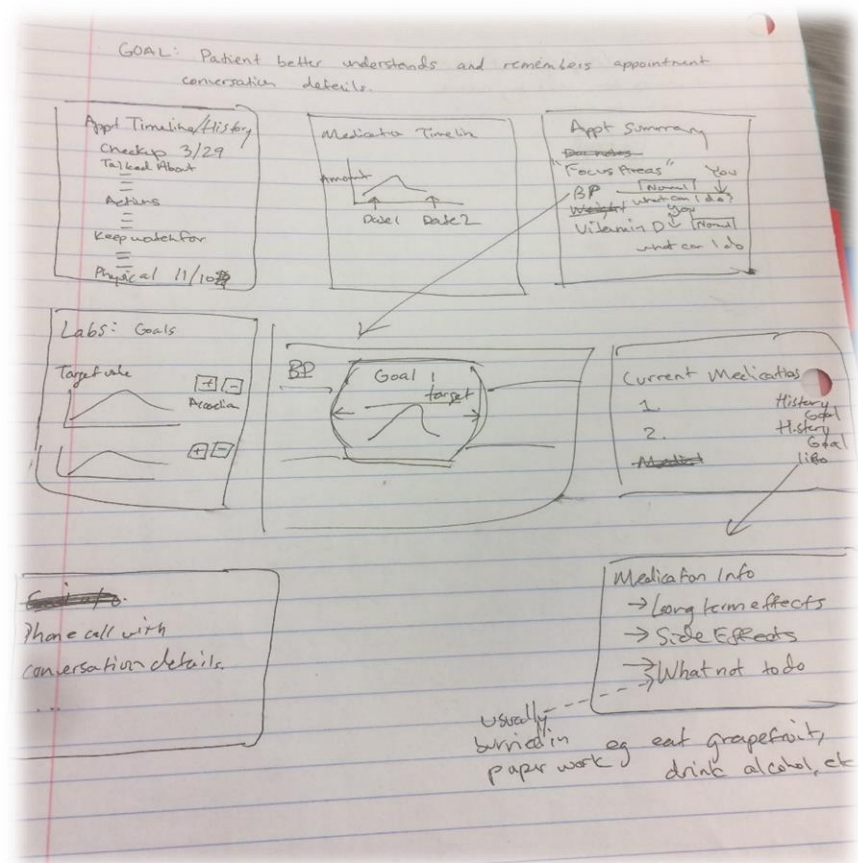 GOAL: Patient better understands and remembers appointment
conversation details.
Appt Timeline/History
Checkup 3/29
Talked About
Actions
Keep watch for
Physical 11/10
Medication Timelin
Amount
Date1 Date2
Appt Summary
Doc notes
"Focus Areas" You
BP Normal
what can I do?
Weight You
Vitamin D Normal
what can I do
Labs: Goals
Target value
+ -
Accordian
+ -
BP
Goal
target
Current Medications
1. History
Goal
2. History
Goal
info
Phone call with
conversation details.
...
Medication Info
→ Long term effects
→ Side Effects
→ What not to do
usually
burried in
paper work
eg eat grapefruit,
drink alcohol, etc